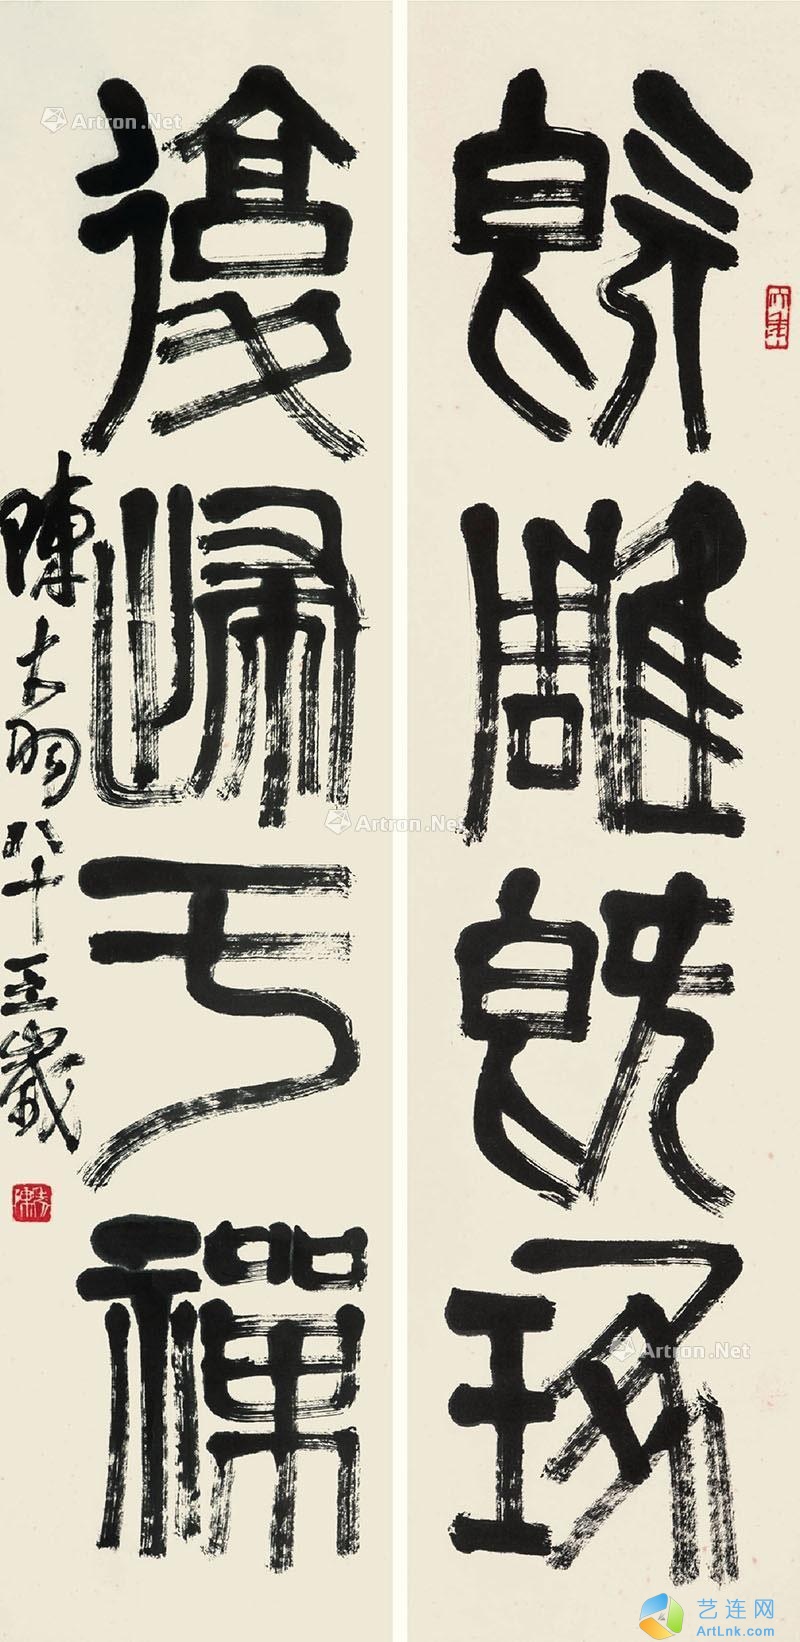 既雕既琢
復歸于禪
陳大羽八十五歲
Artron.Net
Artron.Net
Artron.Net
艺连网
ArtLnk.com